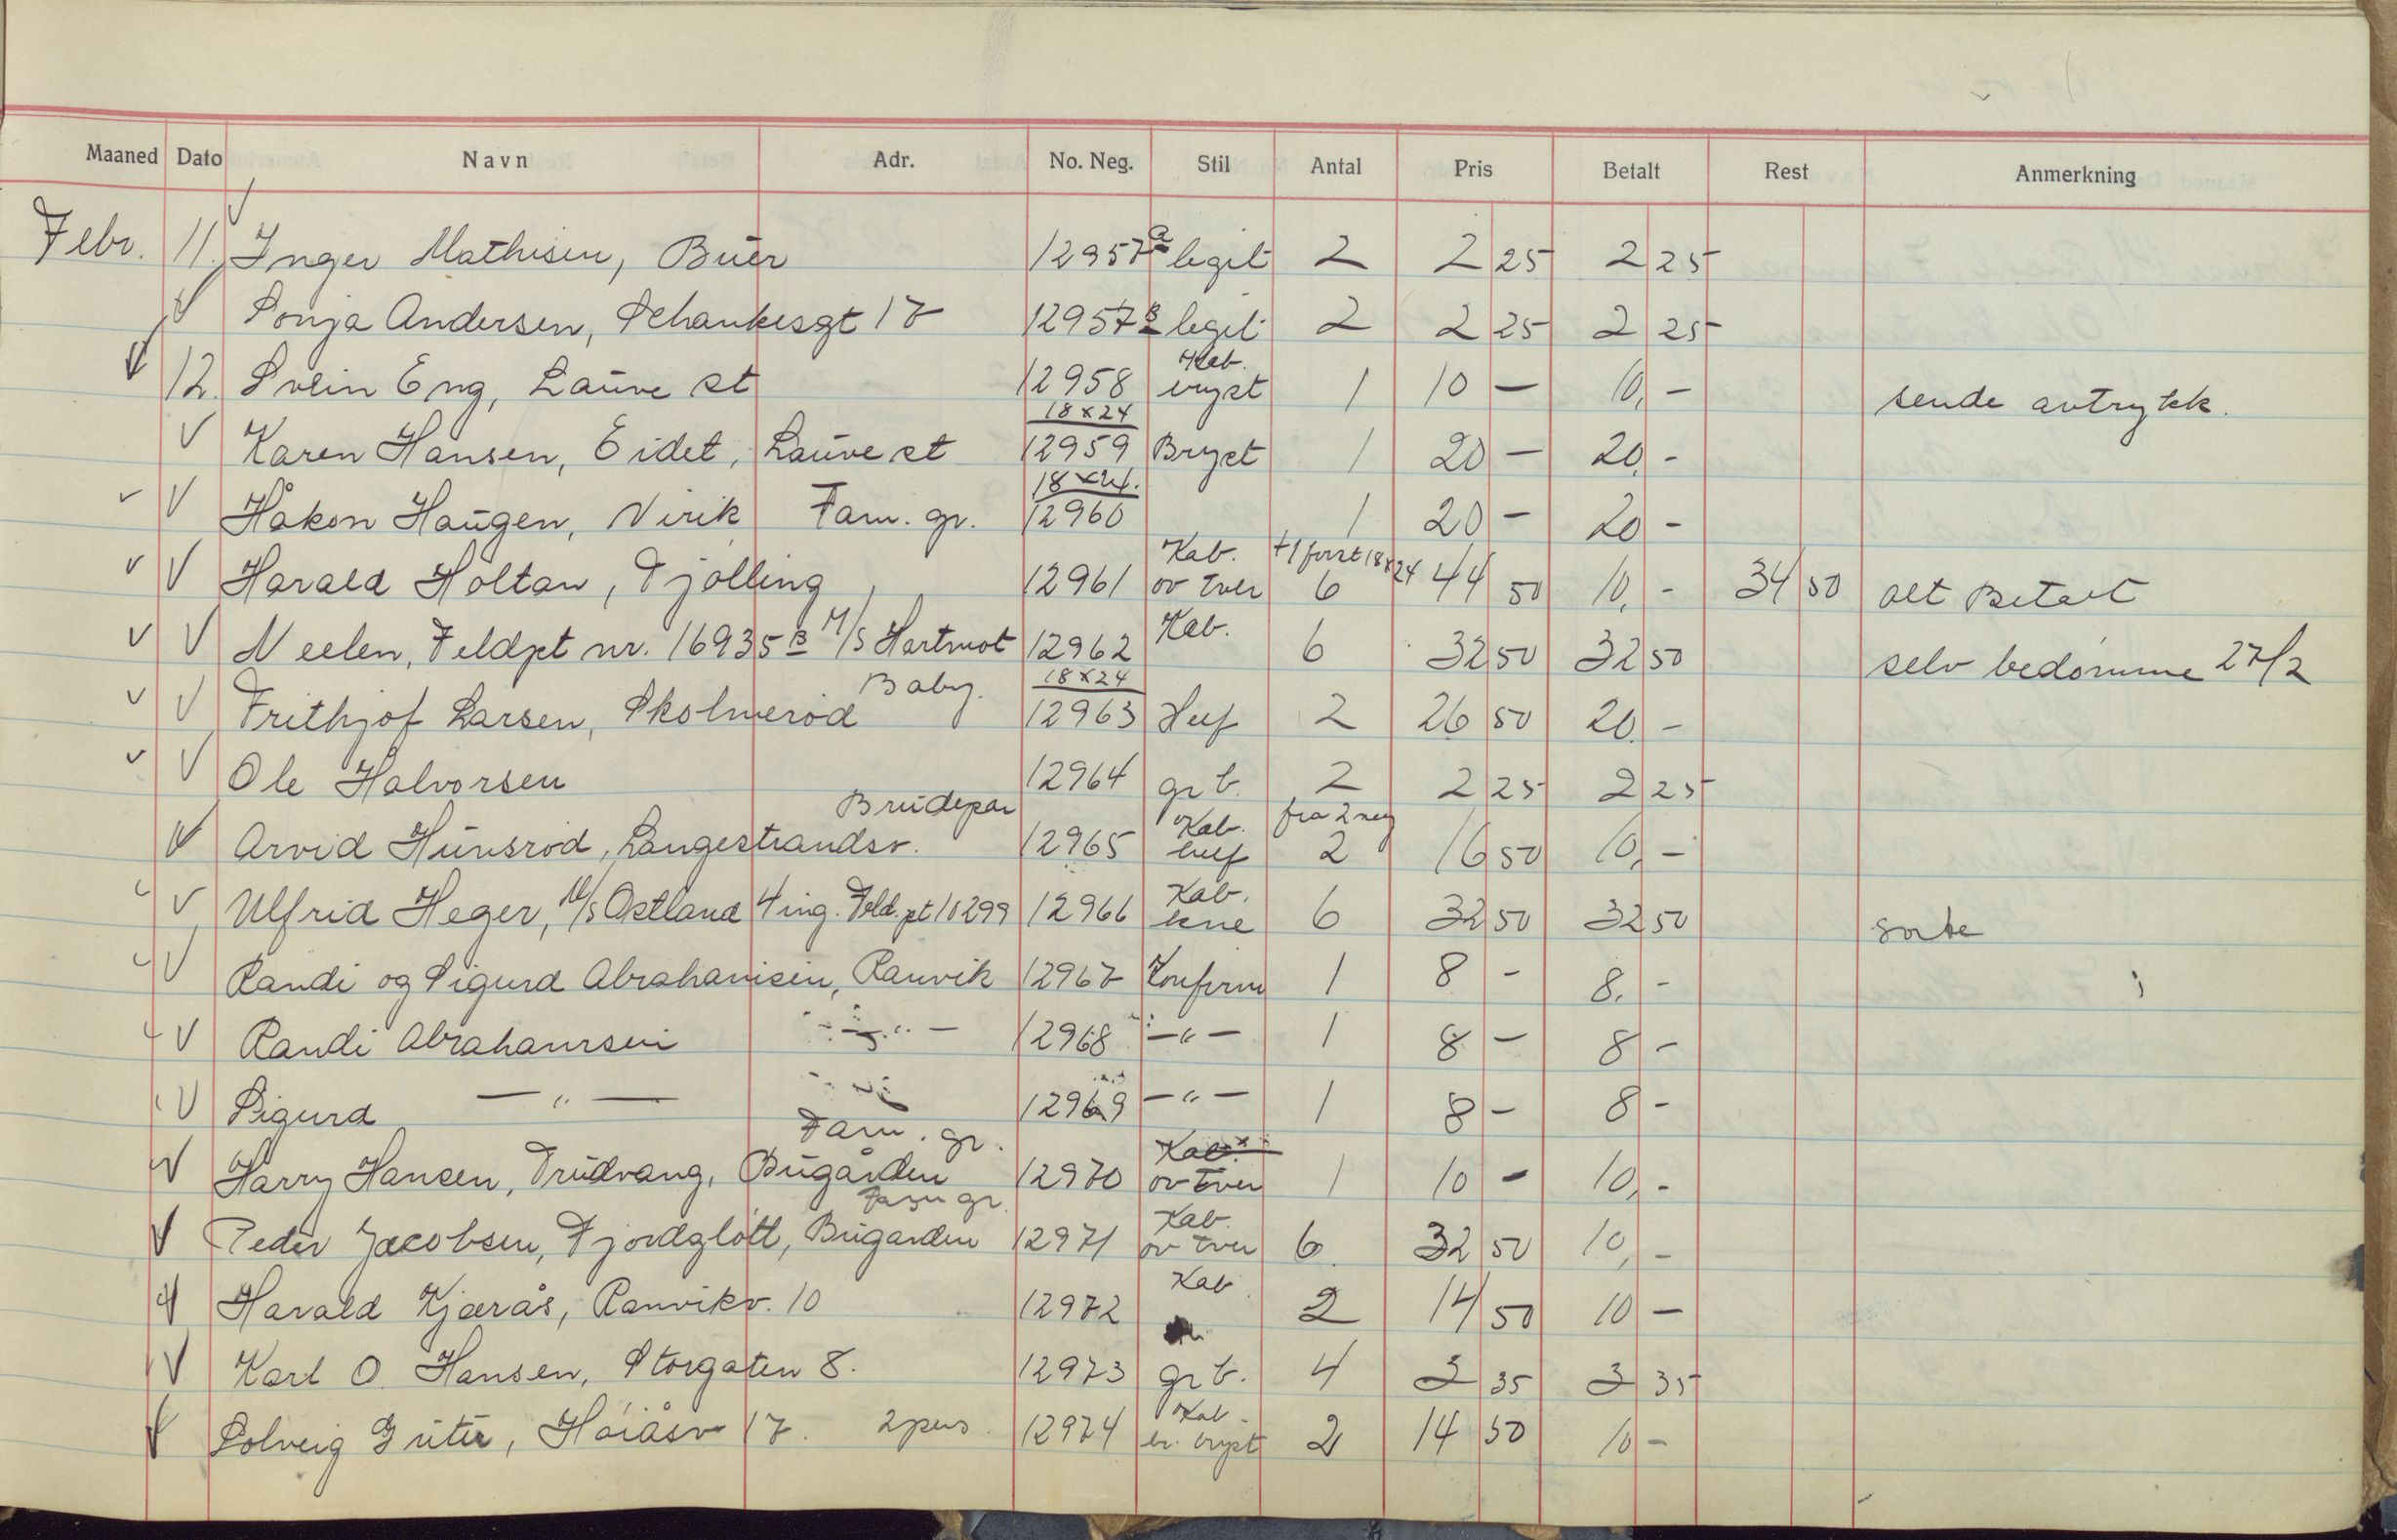 Maaned Dato Navn Adr. No. Neg. Stil Antal Pris Betalt Rest Anmerkning
Febr. 11. Inger Mathisen, Buer 12957a legit 2 2 25 2 25
Sonja Andersen, Schankesgt 17 12957B legit 2 2 25 2 25
12. Svein Eng, Lauve st 12958 Kab. bryst 1 10 — 10,- sende avtrykk.
Karen Hansen, Eidet, Lauve st 18x24 12959 Bryst 1 20 — 20,-
Håkon Haugen, Virik Fam. gr. 18x24. 12960 1 20 - 20 -
Harald Holtan, Tjølling 12961 Kab. ov tver +1 forst 18x24 6 44 50 10,- 34 50 alt Betalt
Neelen, Feldpt nr. 16935 B M/S Hartmot 12962 Kab. 6 32 50 32 50 selv bedømme 27/2
Frithjof Larsen, Skolmerød Baby. 18x24 12963 Huf 2 26 50 20.-
Ole Halvorsen 12964 gr b. 2 2 25 2 25
Arvid Hunsrød, Langestrandsv. Brudepar 12965 Kab. huf fra 2 neg 2 16 50 10,-
Ulfrid Heger, M/S Ostland 4 ing. Feld.pt 10299 12966 Kab. kne 6 32 50 32 50 sorte
Randi og Sigurd Abrahamsen, Ranvik 12967 Konfirm 1 8 - 8,-
Randi Abrahamsen — " — 12968 — " — 1 8 — 8 -
Sigurd — " — 12969 — " — 1 8 - 8 -
Harry Hansen, Trudvang, Bugården Fam. gr. 12970 Kab. ov tver 1 10 - 10,-
Peder Jacobsen, Fjordgløtt, Bugarden Fam gr. 12971 Kab. ov tver 6 32 50 10,-
Harald Kjærås, Ranvikv. 10 12972 Kab. 2 14 50 10 —
Karl O. Hansen, Storgaten 8. 12973 gr b. 4 3 35 3 35
Solveig Gruter, Høiåsv 17. 2 pers. 12974 Kab. br. bryst 2 14 50 10 -